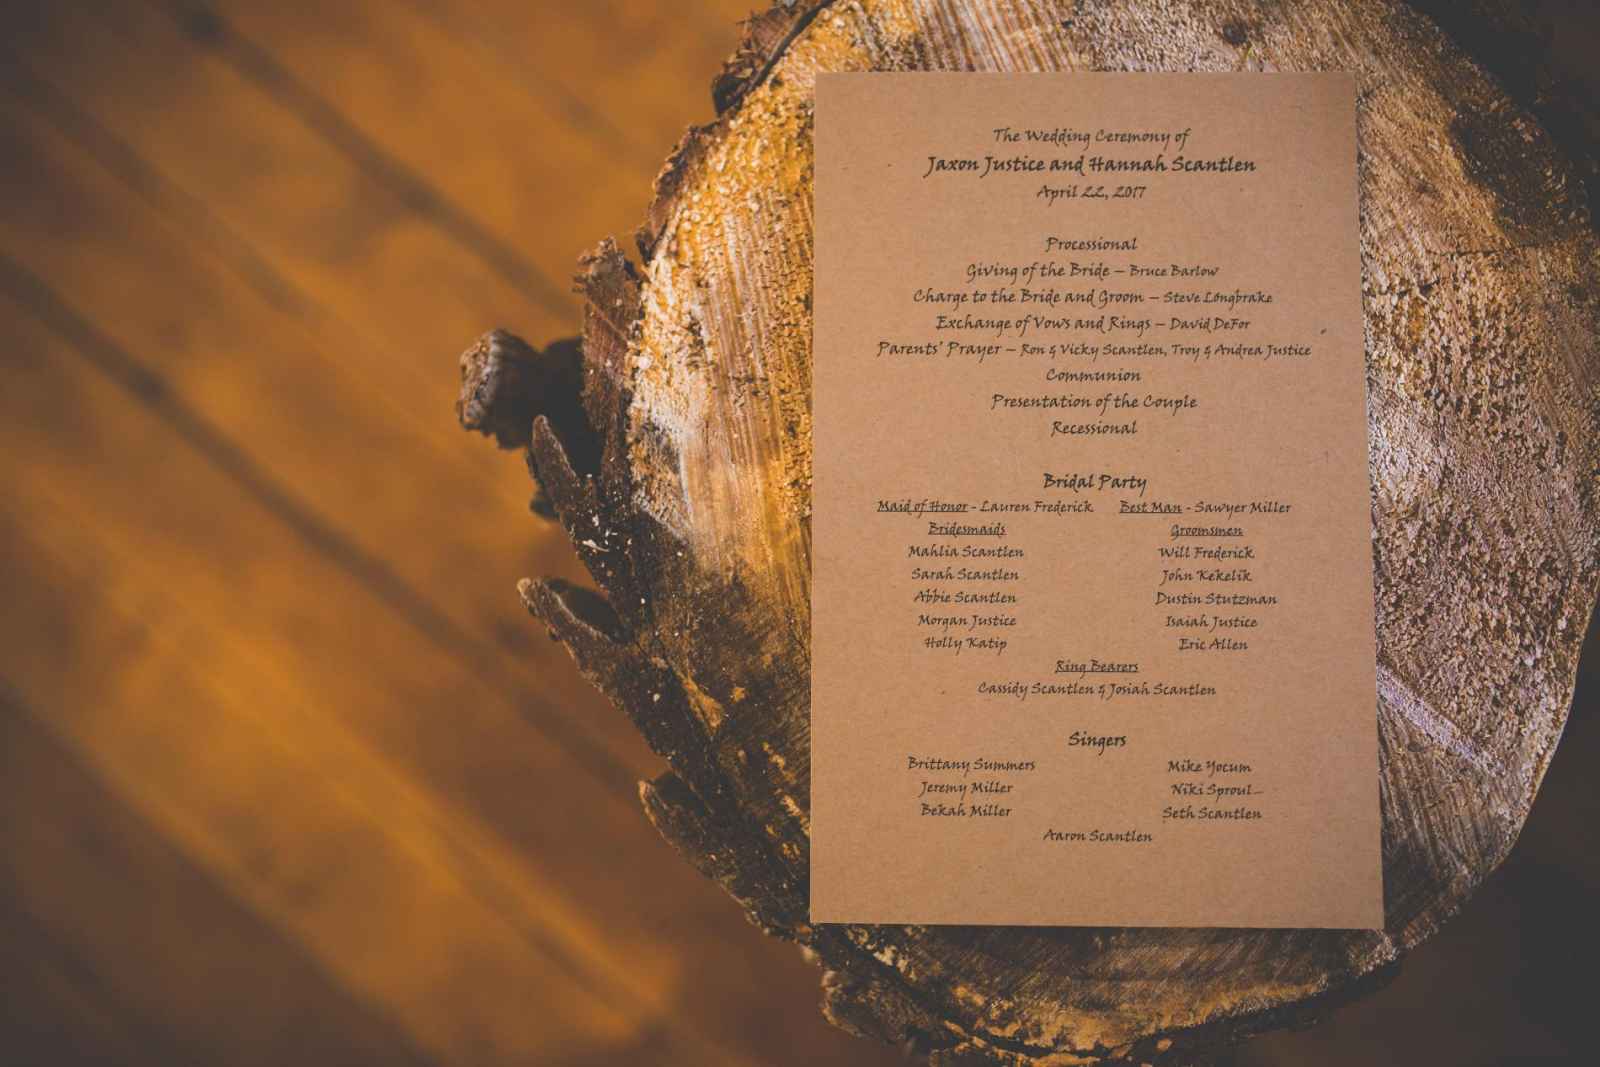 The Wedding Ceremony of
Jaxon Justice and Hannah Scantlen
April 22, 2017
Processional
Giving of the Bride – Bruce Barlow
Charge to the Bride and Groom – Steve Longbrake
Exchange of Vows and Rings – David DeFor
Parents' Prayer – Ron & Vicky Scantlen, Troy & Andrea Justice
Communion
Presentation of the Couple
Recessional
Bridal Party
Maid of Honor - Lauren Frederick Best Man - Sawyer Miller
Bridesmaids Groomsmen
Mahlia Scantlen Will Frederick
Sarah Scantlen John Kekelik
Abbie Scantlen Dustin Stutzman
Morgan Justice Isaiah Justice
Holly Katip Eric Allen
Ring Bearers
Cassidy Scantlen & Josiah Scantlen
Singers
Brittany Summers Mike Yocum
Jeremy Miller Niki Sproul
Bekah Miller Seth Scantlen
Aaron Scantlen